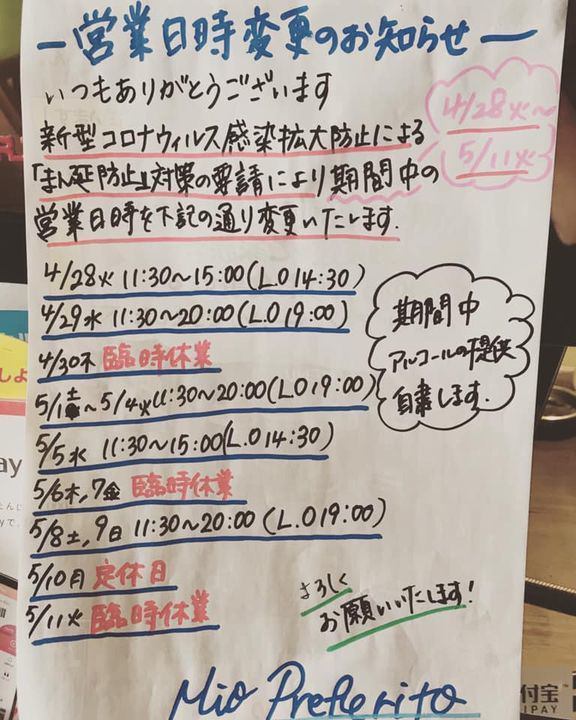 ー営業日時変更のお知らせー
いつもありがとうございます
新型コロナウィルス感染拡大防止による
「まん延防止」対策の要請により期間中の
営業日時を下記の通り変更いたします.
4/28火〜
5/11火
4/28火 11:30〜15:00(L.O 14:30)
4/29水 11:30〜20:00(L.O 19:00)
4/30木 臨時休業
5/1土〜5/4火 11:30〜20:00(L.O 19:00)
5/5水 11:30〜15:00(L.O 14:30)
5/6木,7金 臨時休業
5/8土,9日 11:30〜20:00(L.O 19:00)
5/10月 定休日
5/11火 臨時休業
期間中
アルコールの提供
自粛します.
よろしく
お願いいたします!
Mio Preferito
ay
付宝
IPAY